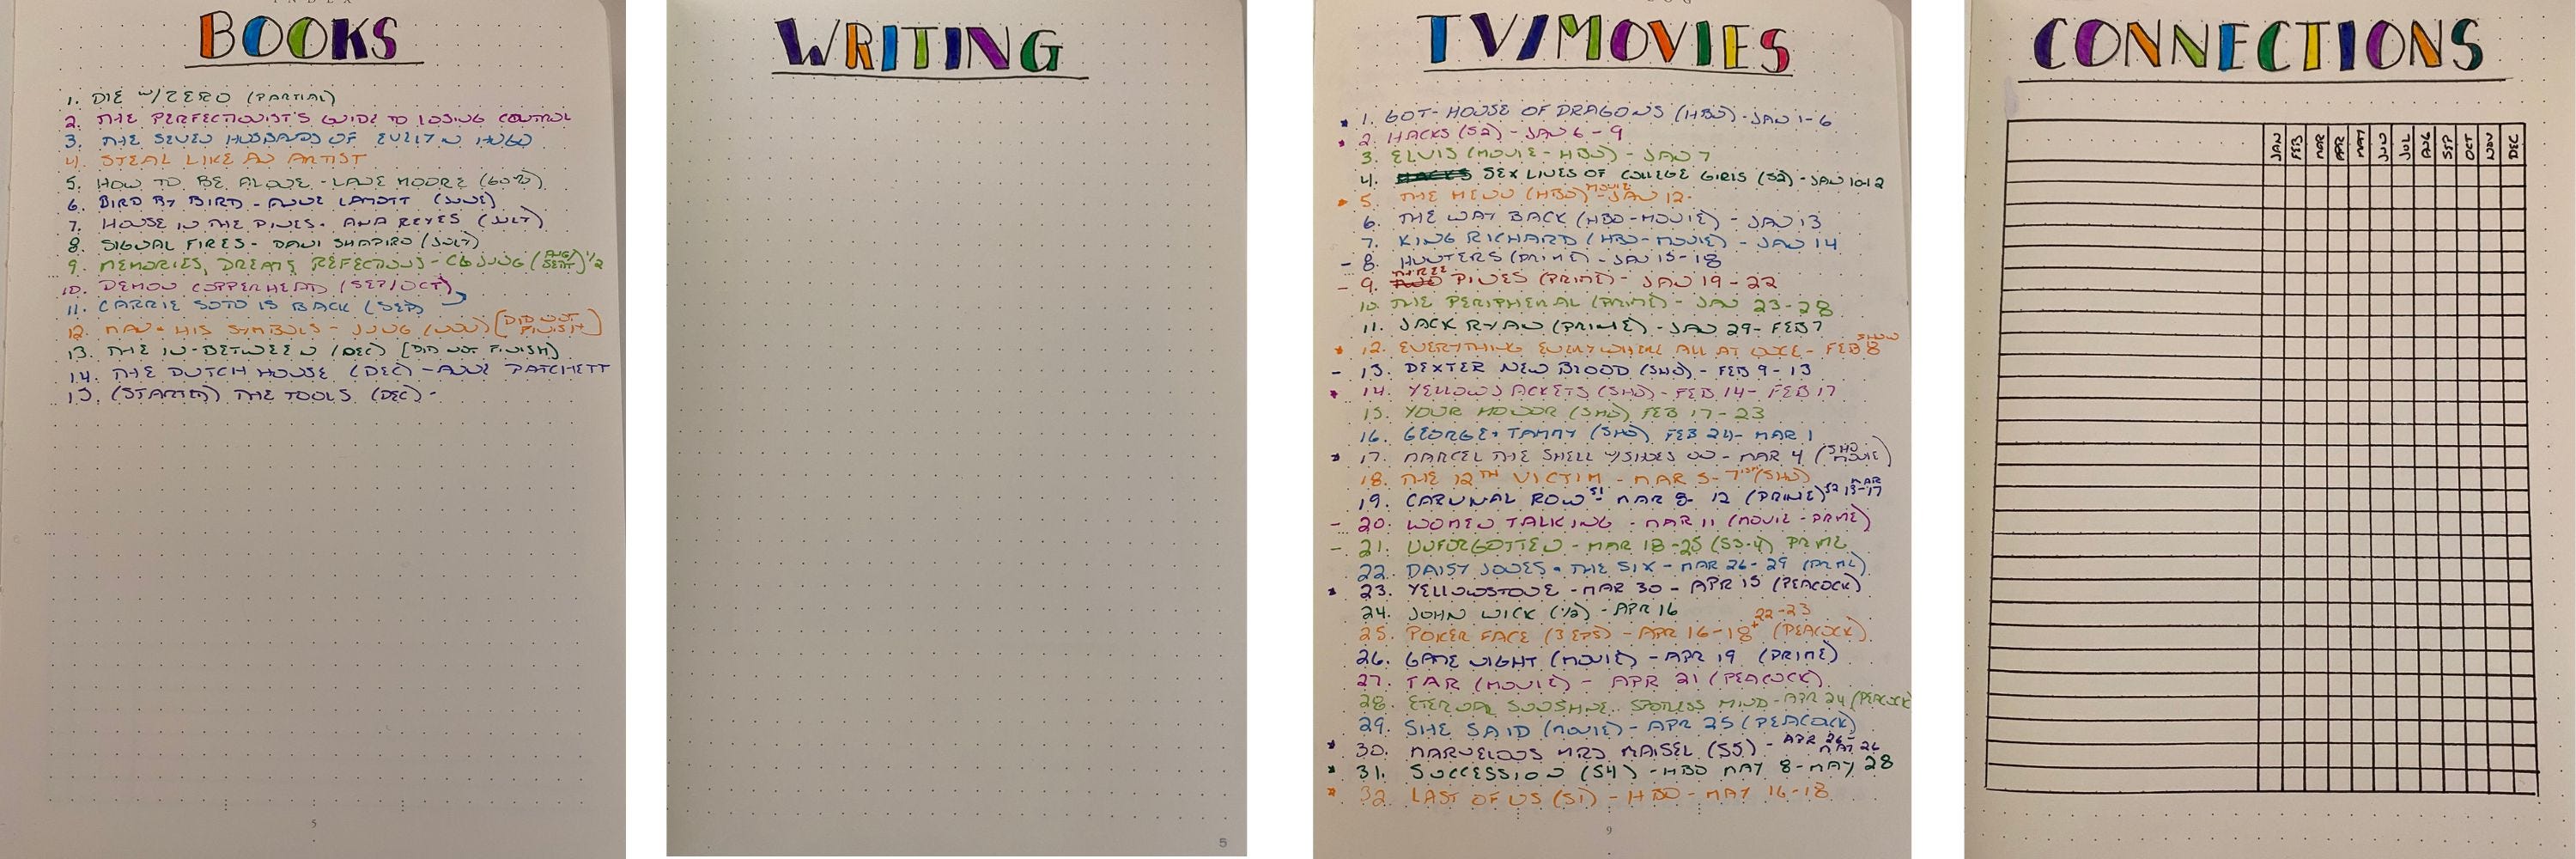 INDEX
BOOKS
1. DIE W/ ZERO (PARTIAL)
2. THE PERFECTIONIST'S GUIDE TO LOSING CONTROL
3. THE SEVEN HUSBANDS OF EVELYN HUGO
4. STEAL LIKE AN ARTIST
5. HOW TO BE ALONE - LANE MOORE (60%)
6. BIRD BY BIRD - ANNE LAMOTT (JUNE)
7. HOUSE IN THE PINES - ANA REYES (JULY)
8. SIGNAL FIRES - DANI SHAPIRO (JULY)
9. MEMORIES, DREAMS, REFECTIONS - CG JUNG (AUG/SEPT) 1/2
10. DEMON COPPERHEAD (SEP/OCT)
11. CARRIE SOTO IS BACK (SEP)
12. MAN + HIS SYMBOLS - JUNG (NOV) [DID NOT FINISH]
13. THE IN-BETWEEN (DEC) [DID NOT FINISH]
14. THE DUTCH HOUSE (DEC) - ANN PATCHETT
15. (STARTED) THE TOOLS (DEC) -
5
WRITING
5
TV/MOVIES
1. GOT- HOUSE OF DRAGONS (HBO) - JAN 1-6
2. HACKS (S2) - JAN 6-9
3. ELVIS (MOVIE - HBO) - JAN 7
4. SEX LIVES OF COLLEGE GIRLS (S2) - JAN 10-12
5. THE MENU (HBO) MOVIE - JAN 12
6. THE WAY BACK (HBO-MOVIE) - JAN 13
7. KING RICHARD (HBO-MOVIE) - JAN 14
- 8. HUNTERS (PRIME) - JAN 15-18
- 9. THREE PINES (PRIME) - JAN 19-22
10. THE PERIPHERAL (PRIME) - JAN 23-28
11. JACK RYAN (PRIME) - JAN 29- FEB 7
12. EVERYTHING EVERYWHERE ALL AT ONCE - FEB 8 SHOW
- 13. DEXTER NEW BLOOD (SHO) - FEB 9-13
14. YELLOWJACKETS (SHO) - FEB 14- FEB 17
15. YOUR HONOR (SHO) FEB 17-23
16. GEORGE + TAMMY (SHO) FEB 24- MAR 1
17. MARCEL THE SHELL W/SHOES ON - MAR 4 (SHO MOVIE)
18. THE 12TH VICTIM - MAR 5-7 (SHO)
19. CARNIVAL ROW S1 - MAR 8-12 (PRIME) S2 MAR 13-17
- 20. WOMEN TALKING - MAR 11 (MOVIE - PRIME)
- 21. UNFORGOTTEN - MAR 18-25 (S3-4) PRIME
22. DAISY JONES + THE SIX - MAR 26-29 (PRIME)
23. YELLOWSTONE - MAR 30 - APR 15 (PEACOCK)
24. JOHN WICK (1/2) - APR 16
25. POKER FACE (3 EPS) - APR 16-18 + 22-23 (PEACOCK)
26. GAME NIGHT (MOVIE) - APR 19 (PRIME)
27. TAR (MOVIE) - APR 21 (PEACOCK)
28. ETERNAL SUNSHINE.. SPOTLESS MIND - APR 24 (PEACOCK
29. SHE SAID (MOVIE) - APR 25 (PEACOCK)
30. MARVELOUS MRS MAISEL (S5) - APR 26- MAY 26
31. SUCCESSION (S4) - HBO MAY 8- MAY 28
32. LAST OF US (S1) - HBO - MAY 16-18
9
CONNECTIONS
JAN FEB MAR APR MAY JUN JUL AUG SEP OCT NOV DEC